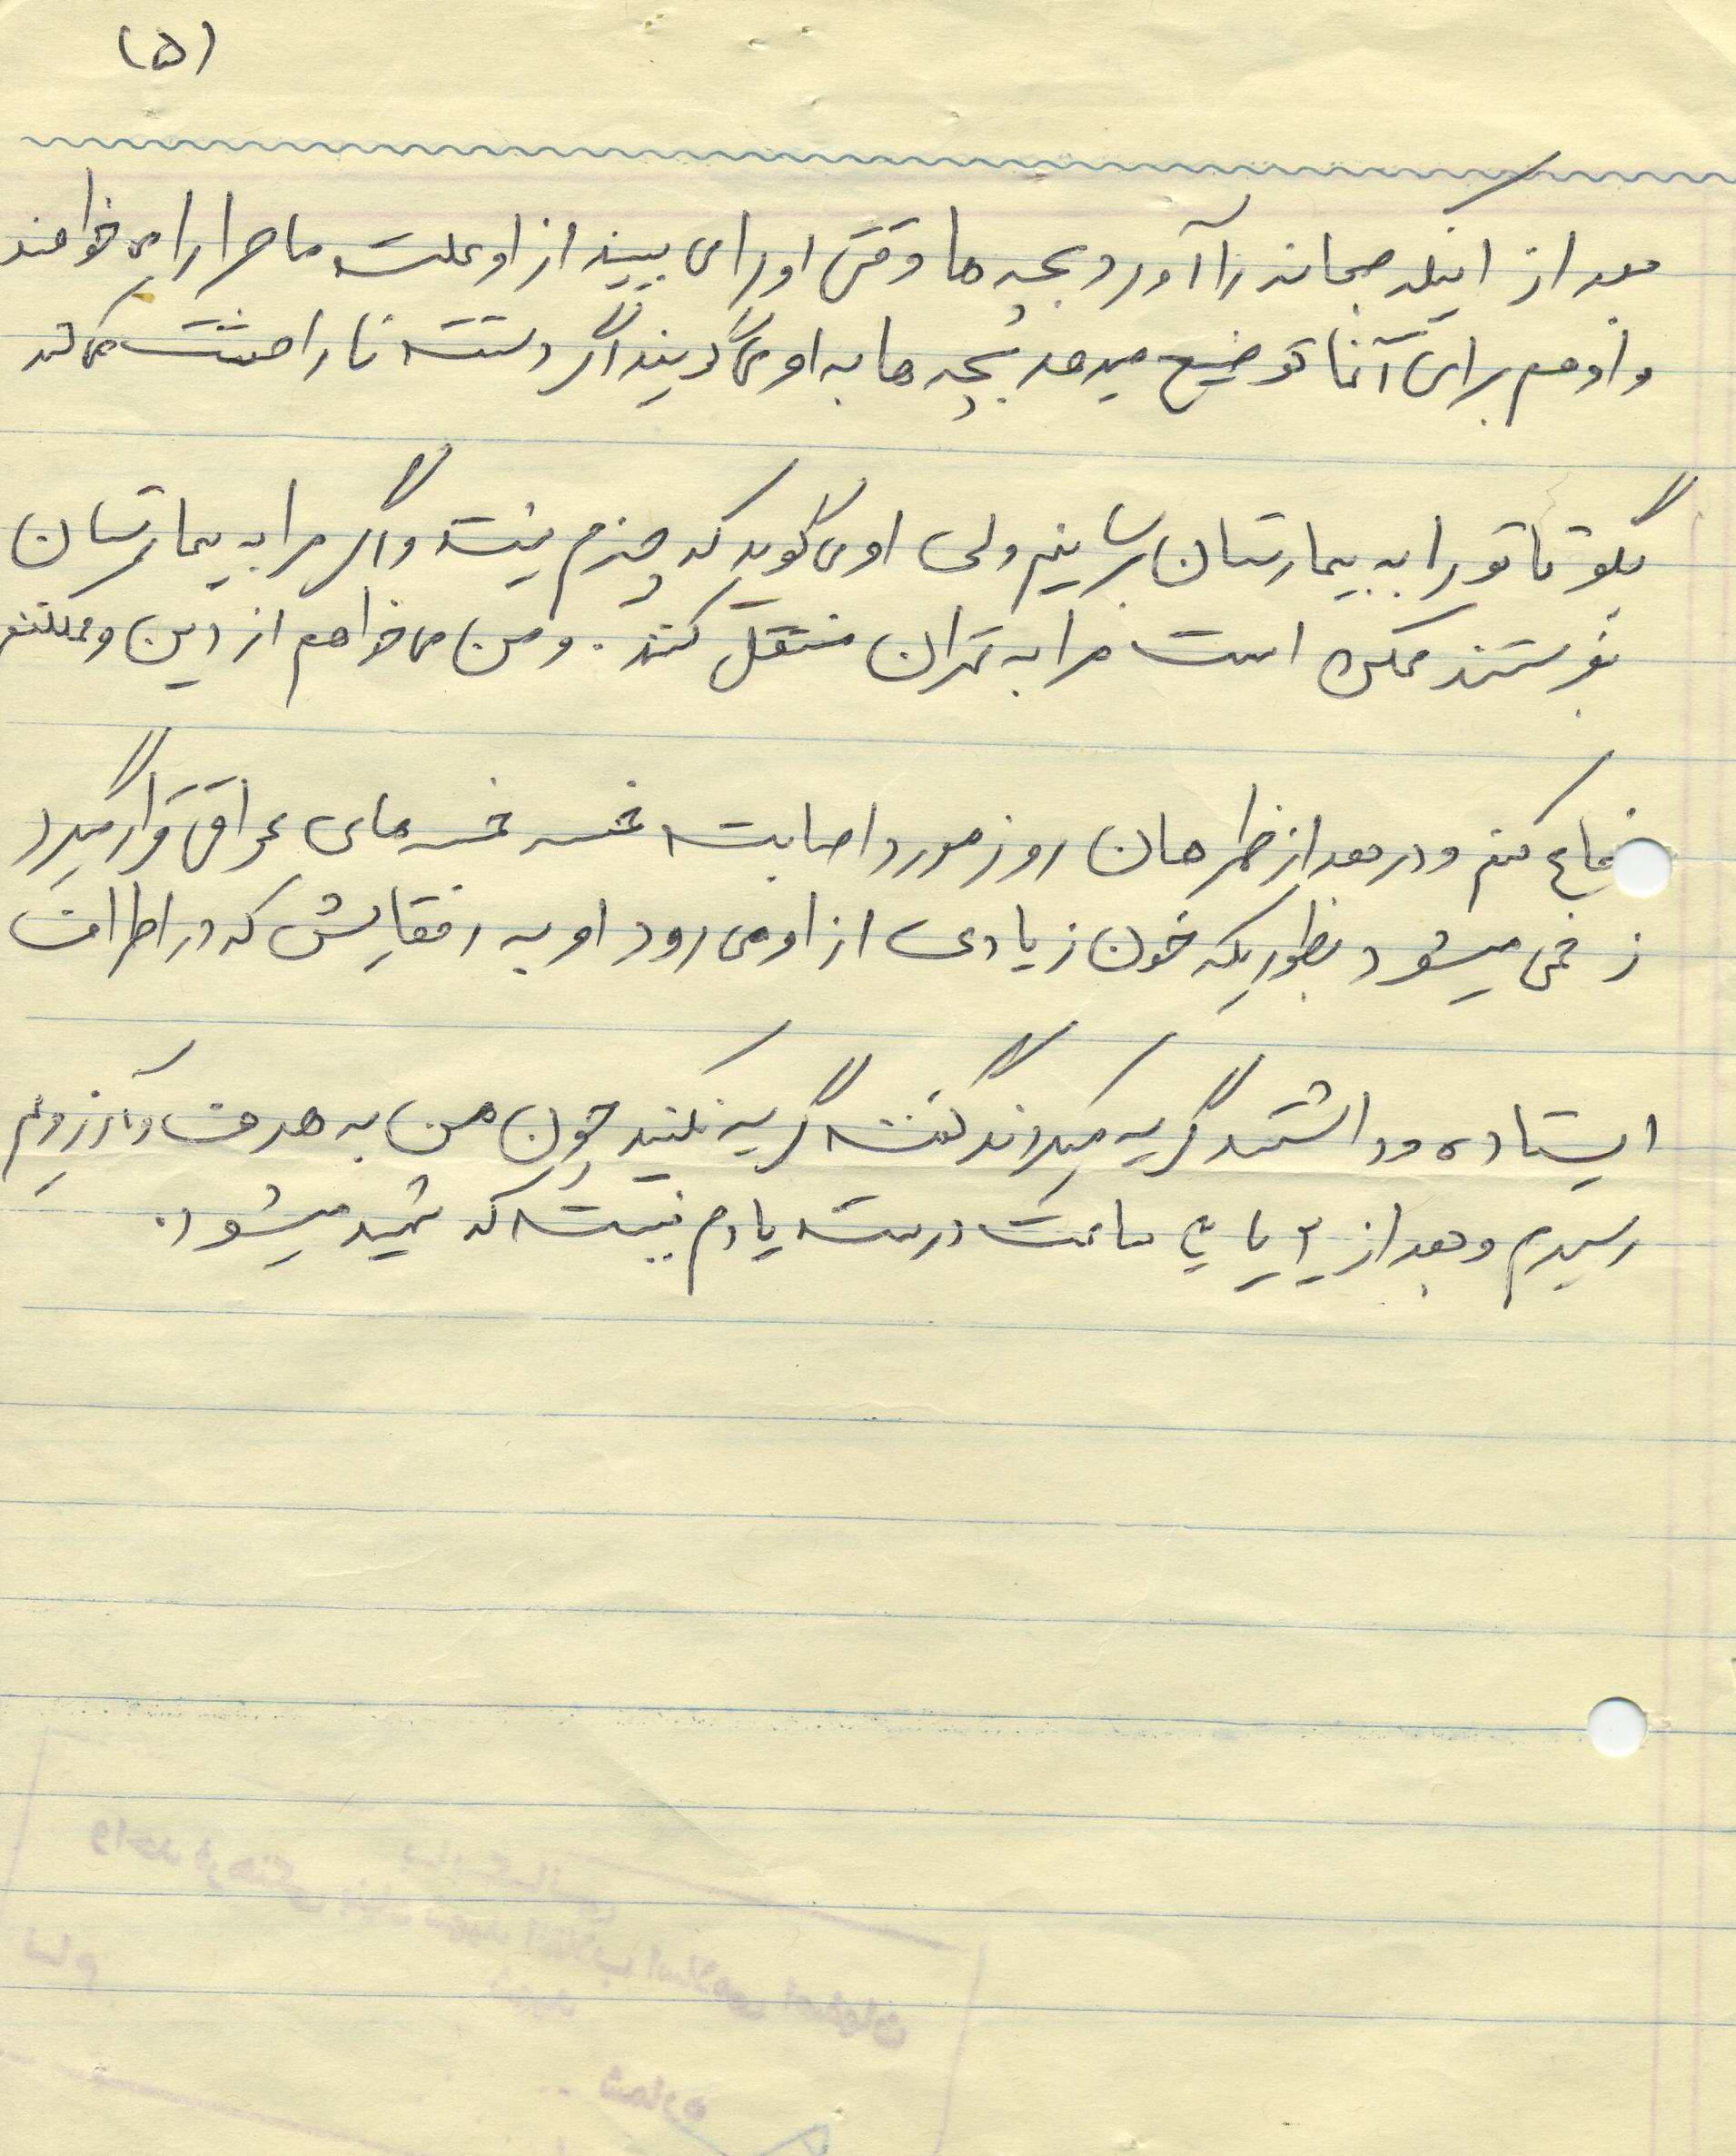 (۵)
بعد از اینکه صبحانه را آورد بچه ها وقتی او را می بیند از او علت ماجرا را می خواهند
و او هم برای آنها توضیح میدهد بچه ها به او می گویند اگر دستت ناراحتت می کند
بگو تا تو را به بیمارستان برسانیم ولی او می گوید که چیزیم نیست و اگر مرا به بیمارستان
بفرستند ممکن است مرا به تهران منتقل کنند . و من می خواهم از دین و مملکتم
دفاع کنم و در بعد از ظهر همان روز مورد اصابت خمسه خمسه های عراقی قرار گیرد
زخمی میشود بطوریکه خون زیادی از او می رود او به رفقایش که در اطراف
ایستاده و داشتند گریه میکردند گفت گریه نکنید چون من به هدف و آرزویم
رسیدم و بعد از ۳ یا ۴ ساعت درست یادم نیست که شهید میشود .
واحد فرهنگی بنیاد شهید انقلاب اسلامی اصفهان
شماره